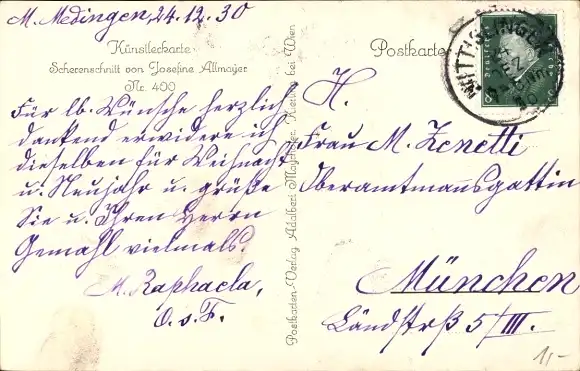 M. Medingen, 24.12.30
Künstlerkarte
Scherenschnitt von Josefine Allmayer
Nr. 400
Für lb. Wünsche herzlich
dankend erwidere ich
dieselben für Weihnacht
u. Neujahr u. grüße
Sie u. Ihren Herrn
Gemahl vielmals.
M. Raphaela,
O.s.F.
Postkarten-Verlag Adalbert bei Wien
Postkarte
H.
Frau M. Zenetti
Oberamtmannsgattin
München
Ländstrß 5/III.
1,-